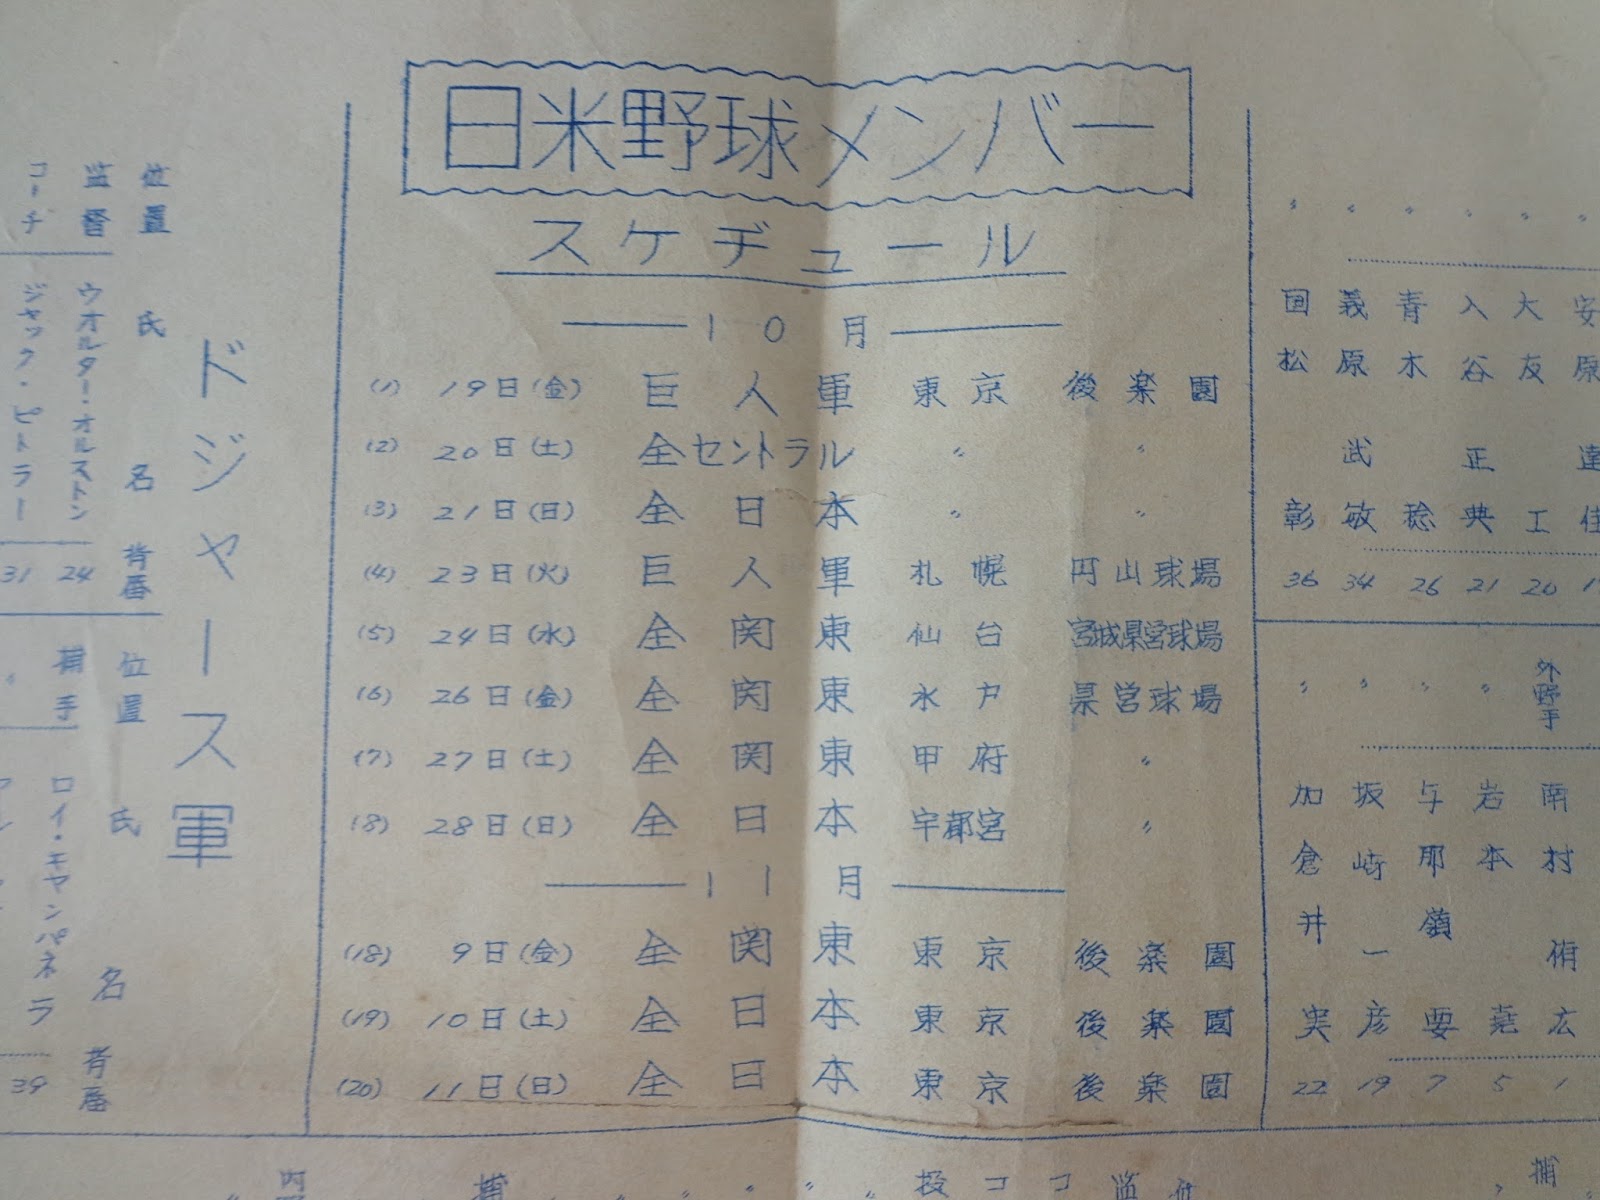 日米野球メンバー
スケヂュール
10月
(1) 19日(金) 巨人軍 東京 後楽園
(2) 20日(土) 全セントラル 〃 〃
(3) 21日(日) 全日本 〃 〃
(4) 23日(火) 巨人軍 札幌 円山球場
(5) 24日(水) 全関東 仙台 宮城県営球場
(6) 26日(金) 全関東 水戸 県営球場
(7) 27日(土) 全関東 甲府 〃
(8) 28日(日) 全日本 宇都宮 〃
11月
(18) 9日(金) 全関東 東京 後楽園
(19) 10日(土) 全日本 東京 後楽園
(20) 11日(日) 全日本 東京 後楽園
〃 〃 〃 〃 〃 〃
安原達佳
大友工 20
入谷正典 21
青木稔 26
義原武敏 34
国松彰 36
外野手 南村侑広 1
〃 岩本堯 5
〃 与那嶺要 7
〃 坂崎一彦 19
〃 加倉井実 22
ドジャース軍
位置 氏名 背番
監督 ウオルター・オルストン 24
コーチ ジャック・ピトラー 31
位置 氏名 背番
捕手 ロイ・キャンパネラ 39
〃
捕 〃 〃 〃 〃 〃 投 コ コ 監 〃 捕